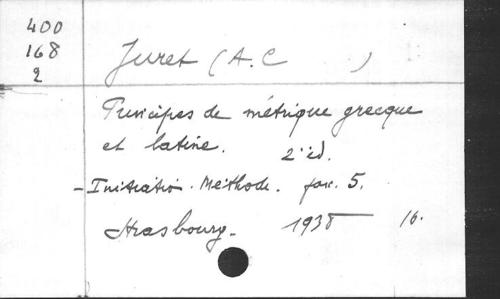 400
168
2
Juret (A.C )
Principes de métrique grecque
et latine. 2e éd.
- Initiation. Méthode. fasc. 5.
Strasbourg. 1938 16.